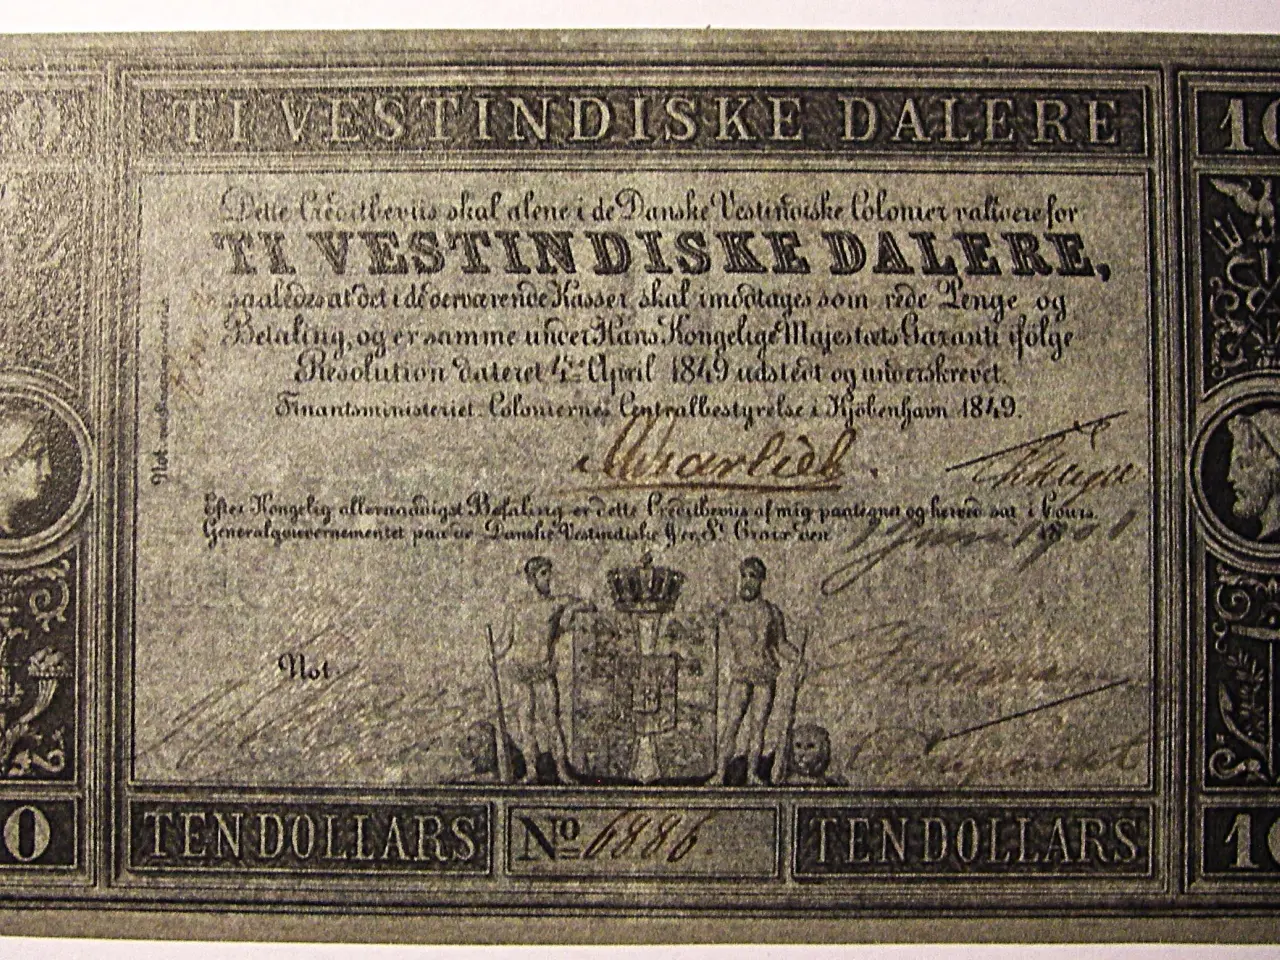 TI VESTINDISKE DALERE
10
Dette Creditbeviis skal alene i de Danske Vestindiske Colonier validere for
TI VESTINDISKE DALERE,
saaledes at det i de derværende Kasser skal imodtages som rede Penge og
Betaling, og er samme under Hans Kongelige Majestæts Garanti ifölge
Resolution dateret 4de April 1849 udstedt og underskrevet.
Finantsministeriet. Coloniernes Centralbestyrelse i Kjöbenhavn 1849.
Efter Kongelig allernaadigst Befaling er dette Creditbeviis af mig paategnet og herved sat i Cours.
Generalgouvernementet paa de Danske Vestindiske Øer, St. Croix den
Not.
0
TEN DOLLARS
No 6886.
TEN DOLLARS
10